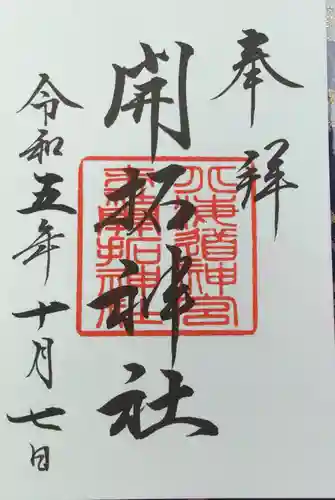 奉拝
開拓神社
令和五年十月七日
北海道神宮
末社開拓神社